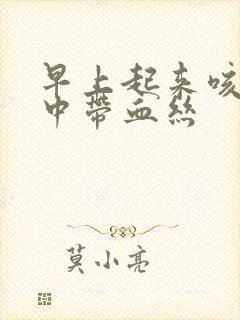 早上起来咳
中带血丝
莫小亮